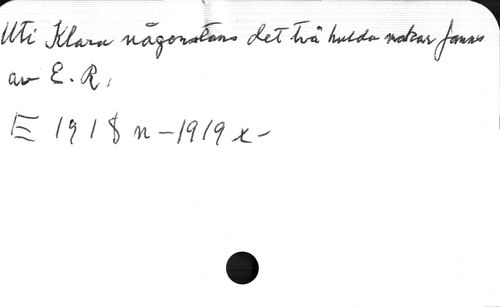 Uti Klara någonstans det två hulda makar fanns
av E. R.
E 1918 n - 1919 x -